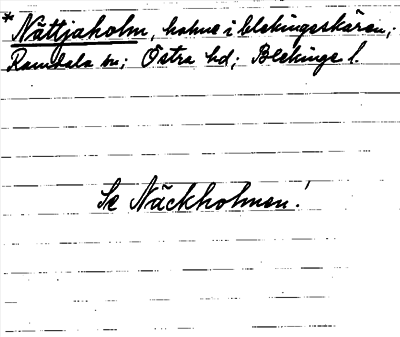 * Nättjaholm, holme i blekingsskären;
Ramdala sn; Östra hd; Blekinge l.
Se Näckholmen!